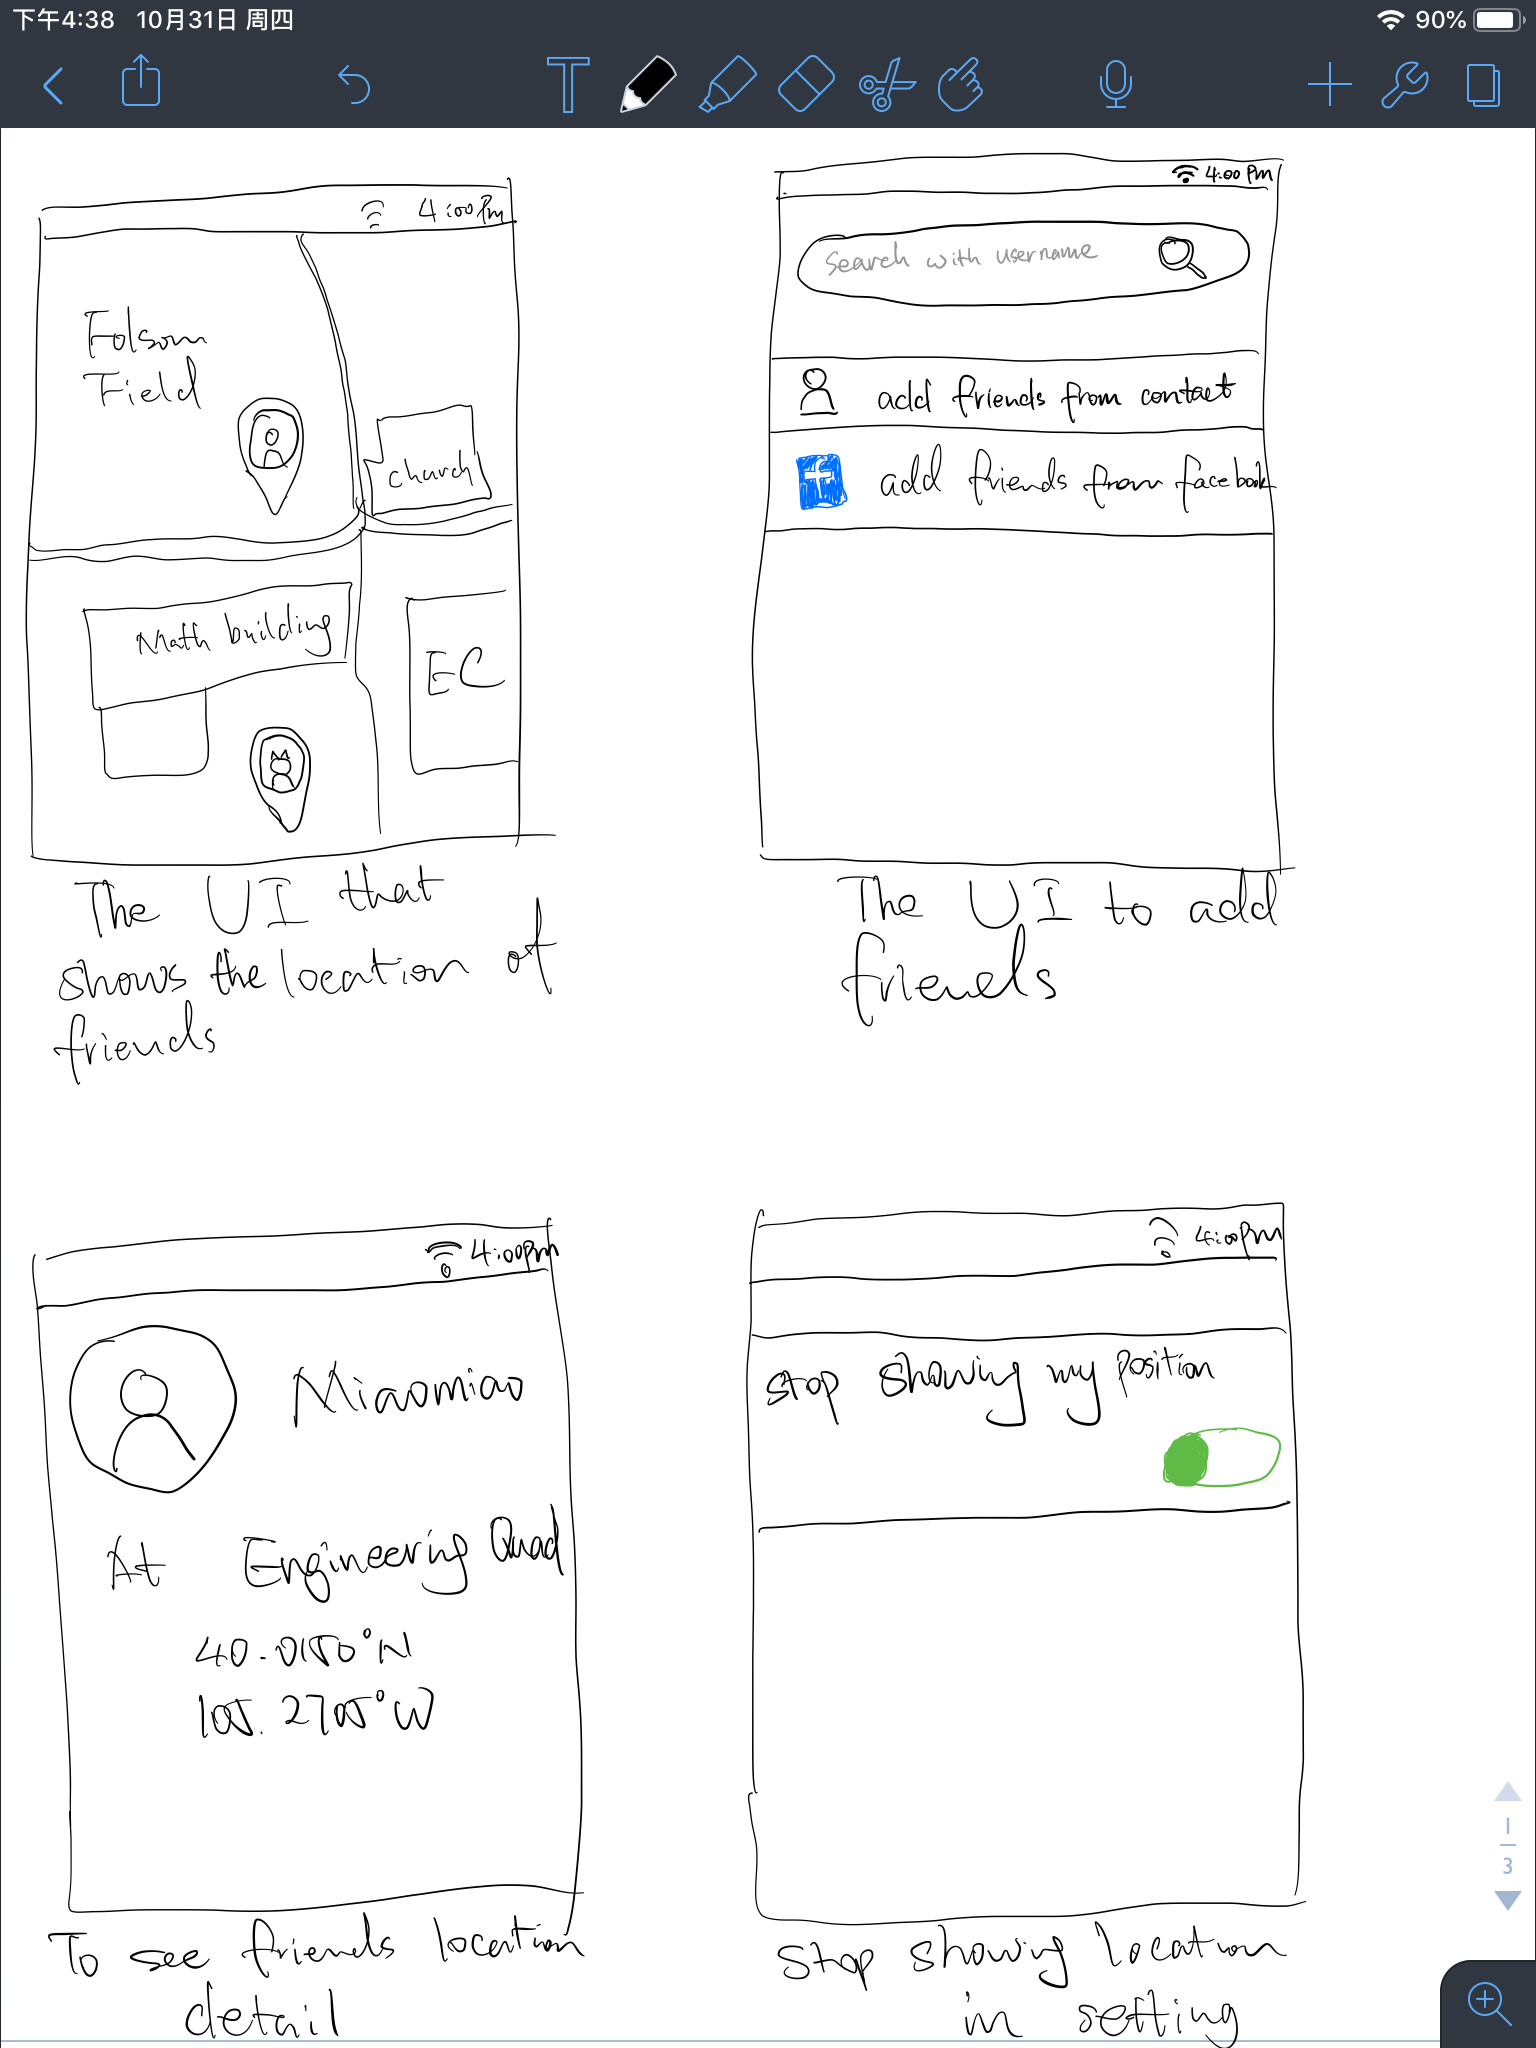 下午4:38 10月31日 周四
90%
T
4:00 Pm
Folsom
Field
church
Math building
EC
The UI that
shows the location of
friends
4:00 Pm
Search with username
add friends from contact
f add friends from facebook
The UI to add
friends
4:00pm
Miaomiao
At Engineering Quad
40.0150°N
105.2705°W
To see friends location
detail
4:00pm
stop showing my position
stop showing location
in setting
1
3